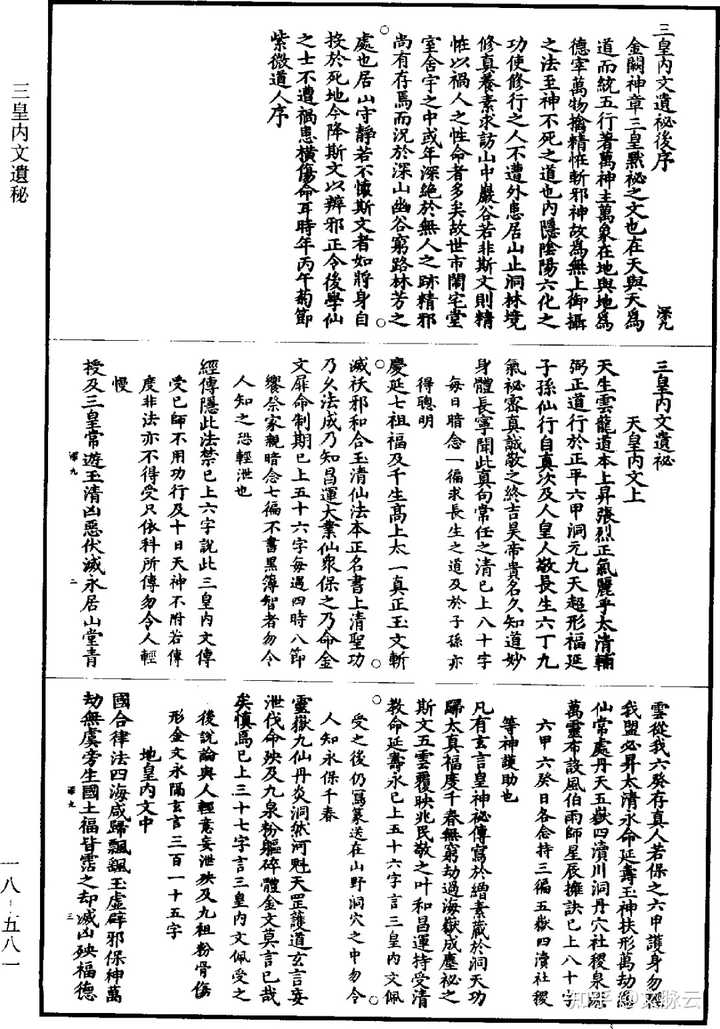 三皇內文遺秘
三皇內文遺祕後序
深九
金闕神章三皇默祕之文也在天與天爲
道而統五行著萬神主萬象在地與地爲
德宰萬物擒精怪斬邪神故爲無上御攝
之法至神不死之道也內隱陰陽六化之
功使修行之人不遭外患居山止洞林境
修真養素求訪山中巖谷若非斯文則精
怪以禍人之性命者多矣故世市闤宅堂
室舍宇之中或年深絕於無人之跡精邪
尚有存焉而況於深山幽谷窮路林芳之
處也居山守靜若不懷斯文者如將身自
投於死地今降斯文以辨邪正令後學仙
之士不遭禍患橫傷命耳時年丙午菊節
紫微道人序
三皇內文遺祕
天皇內文上
天生雲龍道本上昇張烈正氣麗乎太清輔
弼正道行於正平六甲洞元九天超形福延
子孫仙行自真次及人皇人敬長生六丁九
氣祕密真誠敬之終吉昊帝貴名久知道妙
身體長寧聞此真句常任之清已上八十字
每日暗念一徧求長生之道及於子孫亦
得聰明
慶延七祖福及千生高上太一真正玉文斬
滅祅邪和合玉清仙法本正名書上清聖功
乃久法成乃知昌運大業仙衆保之乃命金
文扉命制期已上五十六字每遇四時八節
饗祭家親暗念七徧不書黑簿智者勿令
人知之恐輕泄也
經傳隱此法禁已上六字說此三皇內文傳
受已師不用功行及十日天神不附若傳
度非法亦不得受只依科所傳勿令人輕
慢
授及三皇常遊玉清凶惡伏滅永居山堂青
深九
二
雲從我六癸存真人若保之六甲護身勿經
我盟必昇太清永命延壽玉神扶形萬劫經
仙常處丹天五嶽四瀆川洞丹穴社稷泉源
萬靈布設風伯雨師星辰擁訣已上八十字
六甲六癸日各念持三徧五嶽四瀆社稷
等神護助也
凡有玄言皇神祕傳寫於繒素藏於洞天功
歸太真福慶千春無窮劫過海嶽成塵祕之
斯文五雲覆映兆民敬之叶和昌運持受清
教命延壽永已上五十六字言三皇內文佩
受之後仍寫篆送在山野洞穴之中勿令
人知永保千春
靈嶽九仙丹炎洞然河魁天罡護道玄言妄
泄伐命殃及九泉粉軀碎體金文莫言已哉
矣慎焉已上三十七字言三皇內文佩受之
後說論與人輕意妄泄殃及九祖粉骨傷
形金文永隔玄言三百一十五字
地皇內文中
國合律法四海咸歸飄飆玉虛辟邪保神萬
劫無虞旁生國土福皆霑之却滅凶殃福德
深九
三
一八·五八一
知乎